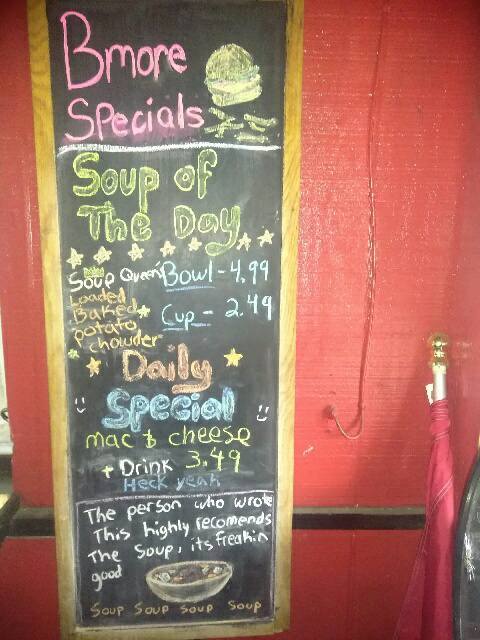 Bmore
Specials
Soup of
The Day
Soup Queen
Bowl - 4.99
Loaded
Baked
potato
chowder
Cup - 2.49
Daily
Special
mac & cheese
+ Drink 3.49
Heck yeah
The person who wrote
This highly recomends
The Soup, its freakin
good
Soup Soup Soup Soup